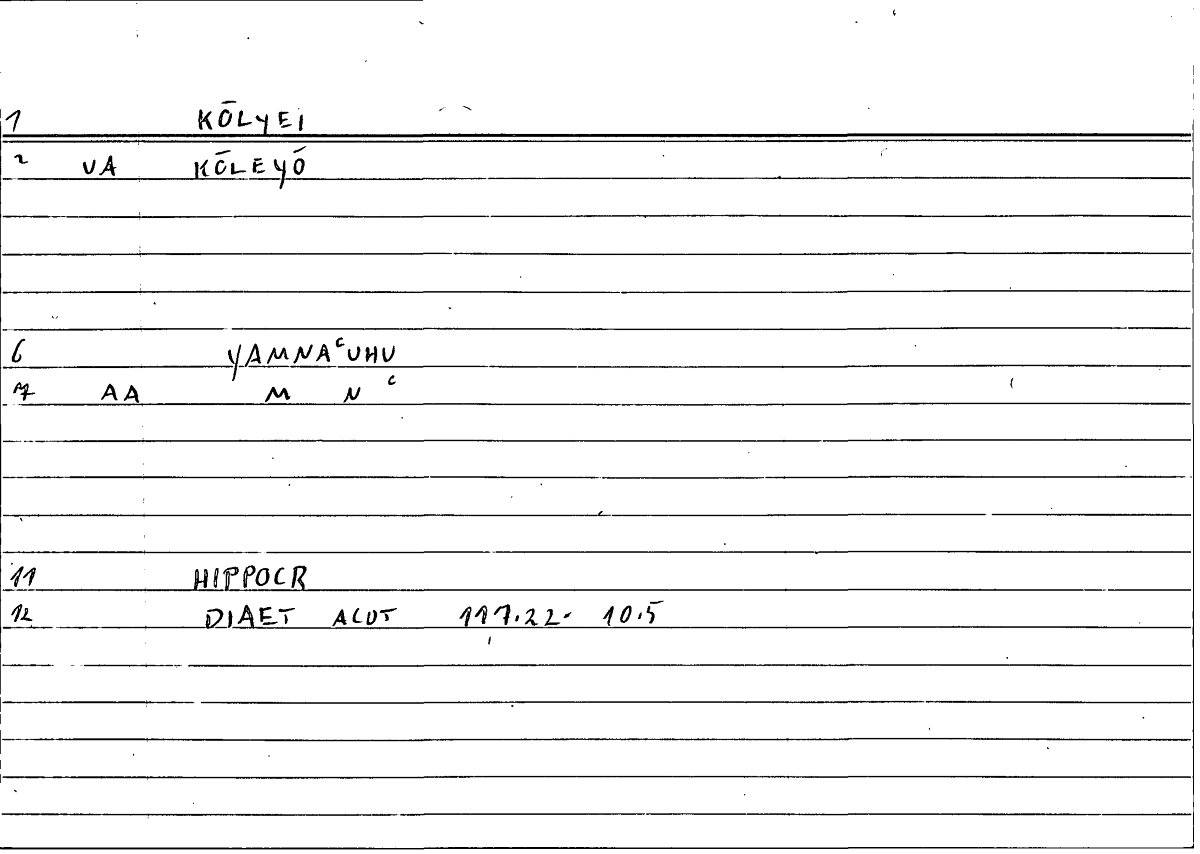 1 KŌLYEI
2 VA KŌLEYŌ
6 YAMNAᶜUHU
7 AA M N ᶜ
11 HIPPOCR
12 DIAET ACUT 117.22. 10.5